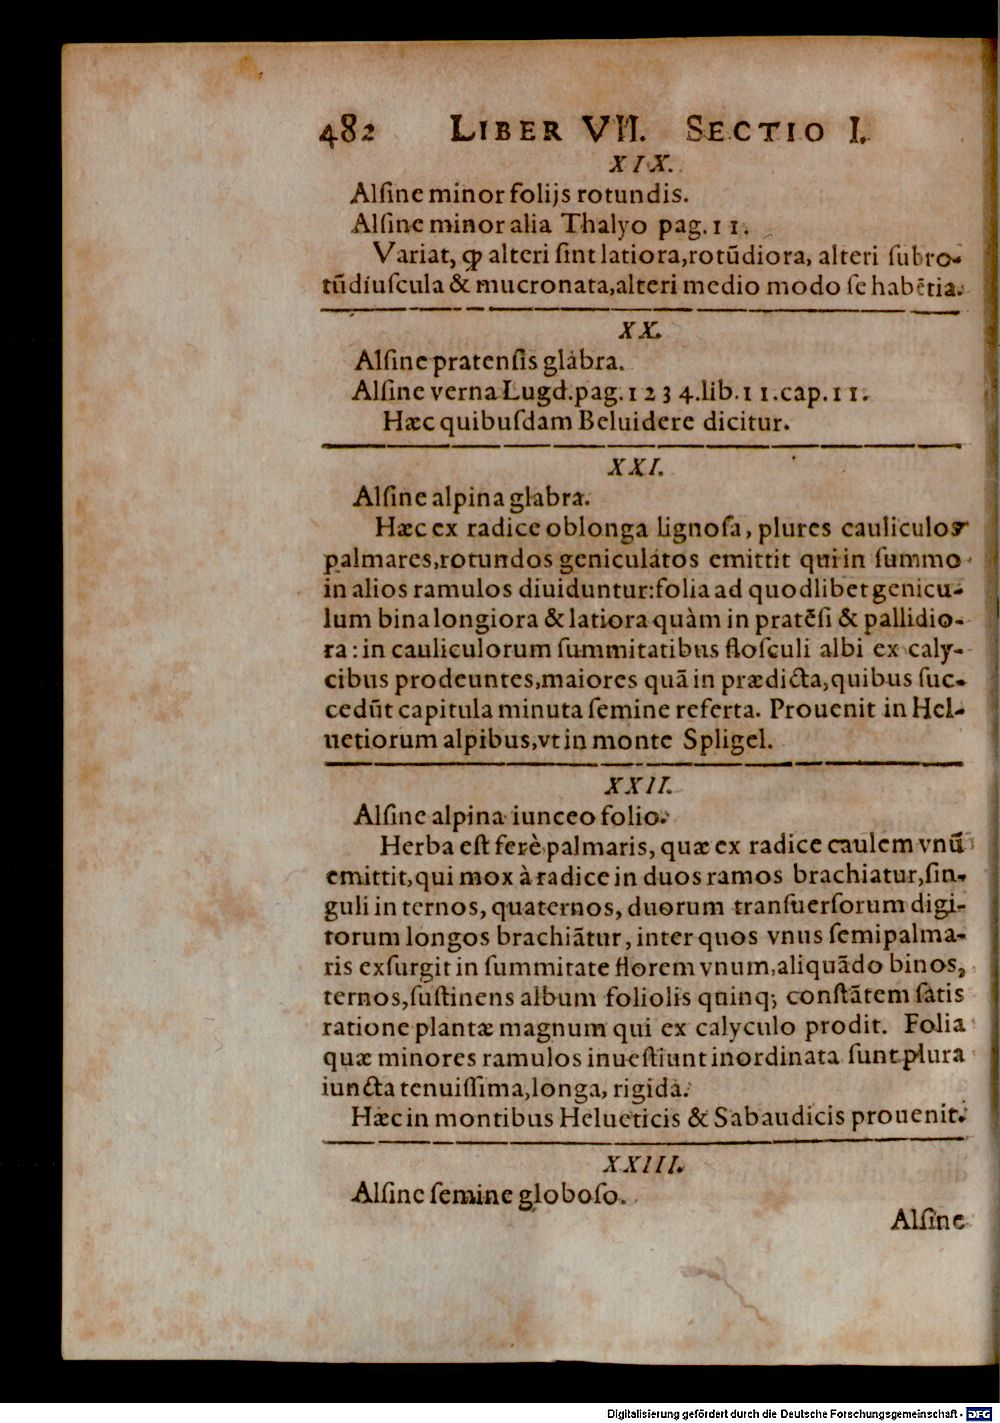 482 LIBER VII. SECTIO I.
XIX.
Alſine minor folijs rotundis.
Alſine minor alia Thalyo pag. 11.
Variat, ꝙ alteri ſint latiora, rotũdiora, alteri ſubro-
tũdiuſcula & mucronata, alteri medio modo ſe habẽtia.
XX.
Alſine pratenſis glabra.
Alſine verna Lugd. pag. 1234. lib. 11. cap. 11.
Hæc quibuſdam Beluidere dicitur.
XXI.
Alſine alpina glabra.
Hæc ex radice oblonga lignoſa, plures cauliculos
palmares, rotundos geniculatos emittit qui in ſummo
in alios ramulos diuiduntur: folia ad quodlibet genicu-
lum bina longiora & latiora quàm in pratẽſi & pallidio-
ra: in cauliculorum ſummitatibus floſculi albi ex caly-
cibus prodeuntes, maiores quã in prædicta, quibus ſuc-
cedũt capitula minuta ſemine referta. Prouenit in Hel-
uetiorum alpibus, vt in monte Spligel.
XXII.
Alſine alpina iunceo folio.
Herba eſt ferè palmaris, quæ ex radice caulem vnũ
emittit, qui mox à radice in duos ramos brachiatur, ſin-
guli in ternos, quaternos, duorum tranſuerſorum digi-
torum longos brachiãtur, inter quos vnus ſemipalma-
ris exſurgit in ſummitate florem vnum, aliquãdo binos,
ternos, ſuſtinens album foliolis quinq; conſtãtem ſatis
ratione plantæ magnum qui ex calyculo prodit. Folia
quæ minores ramulos inueſtiunt inordinata ſunt plura
iuncta tenuiſſima, longa, rigida.
Hæc in montibus Helueticis & Sabaudicis prouenit.
XXIII.
Alſine ſemine globoſo.
Alſine
Digitalisierung gefördert durch die Deutsche Forschungsgemeinschaft - DFG